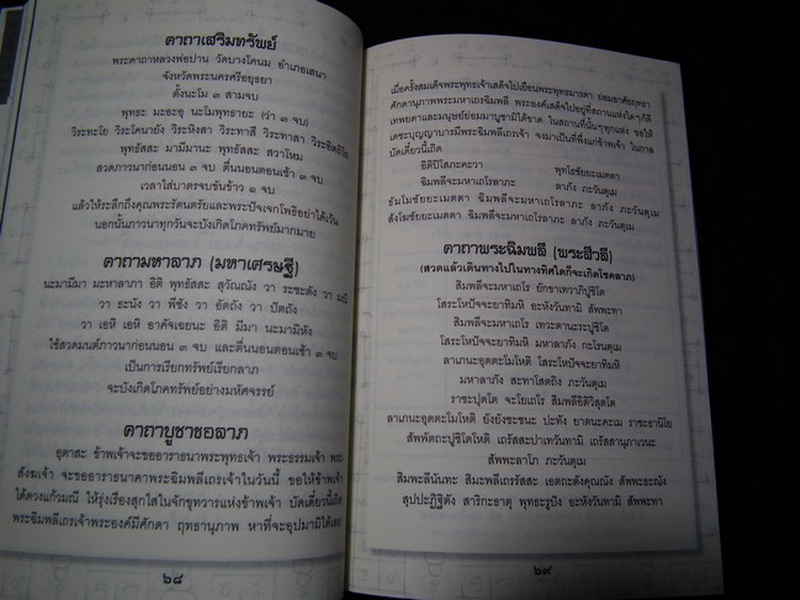 คาถาเสริมทรัพย์
พระคาถาหลวงพ่อปาน วัดบางโคนม อำเภอเสนา
จังหวัดพระนครศรีอยุธยา
ตั้งนะโม ๓ สามจบ
พุทธะ มะอะอุ นะโมพุทธายะ (ว่า ๓ จบ)
วิระทะโย วิระโคนายัง วิระหิงสา วิระทาสี วิระทาสา วิระอิตถิโย
พุทธัสสะ มามีมานะ พุทธัสสะ สวาโหม
สวดภาวนาก่อนนอน ๓ จบ ตื่นนอนตอนเช้า ๓ จบ
เวลาใส่บาตรจบขันข้าว ๑ จบ
แล้วให้ระลึกถึงคุณพระรัตนตรัยและพระปัจเจกโพธิอย่าได้เว้น
นอกนั้นภาวนาทุกวันจะบังเกิดโภคทรัพย์มากมาย
คาถามหาลาภ (มหาเศรษฐี)
นะมามีมา มะหาลาภา อิติ พุทธัสสะ สุวัณณัง วา ระชะตัง วา มณี
วา ธะนัง วา พีชัง วา อัตถัง วา ปัตถัง
วา เอหิ เอหิ อาคัจเฉยนะ อิติ มีมา นะมามิหัง
ใช้สวดมนต์ภาวนาก่อนนอน ๓ จบ และตื่นนอนตอนเช้า ๓ จบ
เป็นการเรียกทรัพย์เรียกลาภ
จะบังเกิดโภคทรัพย์อย่างมหัศจรรย์
คาถาบูชาขอลาภ
อุดาสะ ข้าพเจ้าจะขออาราธนาพระพุทธเจ้า พระธรรมเจ้า พระ-
สังฆเจ้า จะขออาราธนาคาพระฉิมพลีเถรเจ้าในวันนี้ ขอให้ข้าพเจ้า
ได้ดวงแก้วมณี ให้รุ่งเรืองสุกใสในจักขุทวารแห่งข้าพเจ้า บัดเดี๋ยวนี้เถิด
พระฉิมพลีเถรเจ้าพระองค์มีศักดา ฤทธานุภาพ หาที่จะอุปมามิได้เลย
๖๘
เมื่อครั้งสมเด็จพระพุทธเจ้าเสด็จไปเยือนพระพุทธมารดา ย่อมอาศัยฤทธา
ศักดานุภาพพระมหาเถรฉิมพลี พระองค์เสด็จไปอยู่ที่สถานแห่งใดๆก็ดี
เทพยดาและมนุษย์ย่อมมาบูชามิได้ขาด ในสถานที่นั้นๆทุกแห่ง ขอให้
เดชะบุญญาบารมีพระฉิมพลีเถรเจ้า จงมาเป็นที่พึ่งแก่ข้าพเจ้า ในกาล
บัดเดี๋ยวนี้เถิด
อิติปิโสภะคะวา พุทโธชัยยะเมตตา
ฉิมพลีจะมหาเถโรลาภะ ลาภัง ภะวันตุเม
ธัมโมชัยยะเมตตา ฉิมพลีจะมหาเถโรลาภะ ลาภัง ภะวันตุเม
สังโฆชัยยะเมตตา ฉิมพลีจะมหาเถโรลาภะ ลาภัง ภะวันตุเม
คาถาพระฉิมพลี (พระสีวลี)
(สวดแล้วเดินทางไปในทางทิศใดก็จะเกิดโชคลาภ)
สิมพลีจะมะหาเถโร ยักขาเทวาภิปูชิโต
โสระโหปัจจะยาทิมหิ อะหังวันทามิ สัพพะทา
สิมพลีจะมะหาเถโร เทวะตานะระปูชิโต
โสระโหปัจจะยาทิมหิ มหาลาภัง กะโรนตุเม
ลาเภนะอุตตะโมโหติ โสระโหปัจจะยาทิมหิ
มหาลาภัง สะทาโสตถิง ภะวันตุเม
ราชะปุตโต จะโยเถโร สิมพลีอิติวิสุตโต
ลาเภนะอุตตะโมโหติ ยังยังชะชนะ ปะทัง ยาตนะคะเม ราชะธานิโย
สัพพัตถะปูชิโตโหติ เถรัสสะปาเทวันทามิ เถรัสสานุภาเวนะ
สัพพะลาโภ ภะวันตุเม
สิมพะลีนันทะ สิมะพะลีเถรัสสะ เอตถะตังคุณณัง สัพพะธะณัง
สุปปะฏิฐิตัง สาริกะธาตุ พุทธะรูปัง อะหังวันทามิ สัพพะทา
๖๙